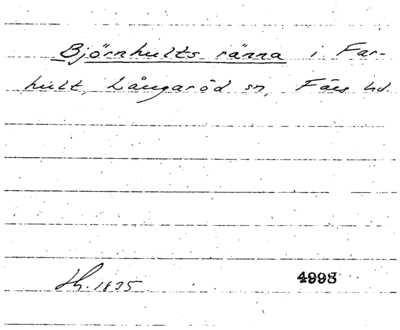 Björnhults ränna i Far-
hult, Långaröd sn, Färs hd.
Lh. 1835
4993